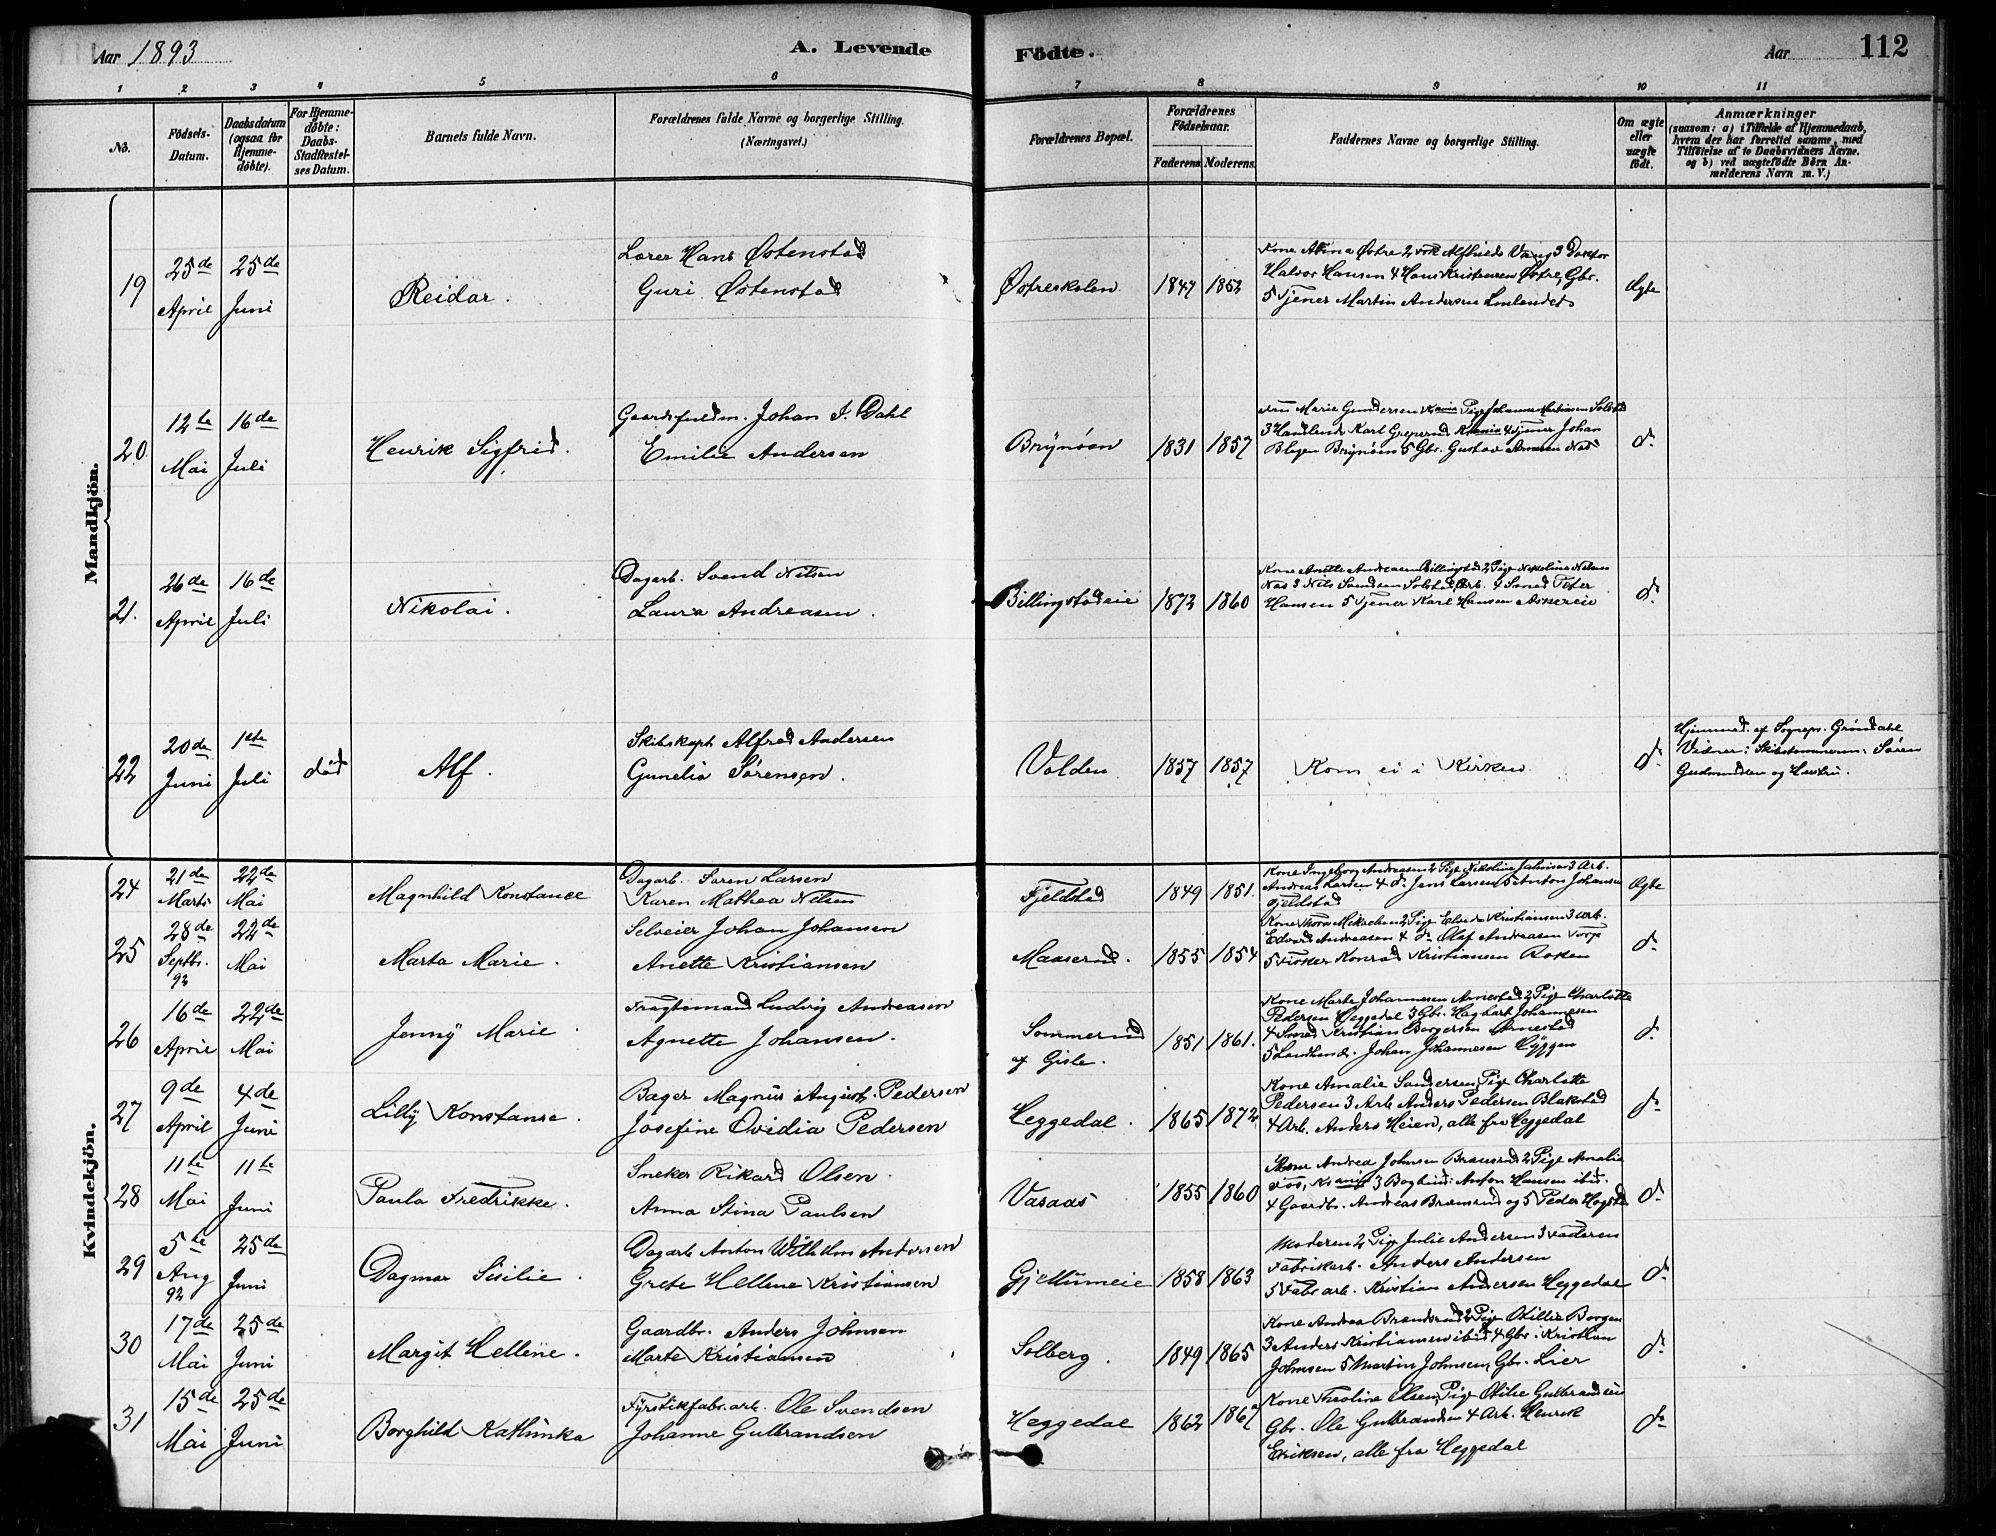 Aar 1893
A. Levende
Födte.
Aar
112
1 2 3 4 5 6 7 8 9 10 11
No.
Födsels-
Datum.
Daabsdatum
(ogsaa for
Hjemme-
døbte).
For Hjemme-
døbte:
Daabs-
Stadfæstel-
ses Datum.
Barnets fulde Navn.
Forældrenes fulde Navne og borgerlige Stilling.
(Næringsvei.)
Forældrenes Bopæl.
Forældrenes
Fødselsaar.
Faderens. Moderens.
Faddernes Navne og borgerlige Stilling.
Om ægte
eller
uægte
født.
Anmærkninger
(saasom: a) i Tilfælde af Hjemmedaab,
hvem der har forrettet samme, med
Tilføielse af to Daabsvidners Navne.
og b) ved uægtefødte Børn An-
melderens Navn m. V.)
Mandkjön.
19
25de
April
25de
Juni
Reidar.
Lærer Hans Østenstad
Guri Østenstad
Østreskolen
1847
1852
Kone Østre 2 Vang 3
Halvor Hansen 4 Hans Kristensen Østre, Gbr.
5 Tjener Martin Andersen
Ægte
20
12te
Mai
16de
Juli
Henrik Sigfrid.
Gaardsfuldm. Johan Dahl
Emilie Andersen
Brynøen
1831
1857
Fru Marie Gundersen Krania Pige Johanne
3 Karl Krania 4 Tjener Johan
Brynøen 5 Gbr. Gustav Næs
do
21.
26de
April
16de
Juli
Nikolai.
Dagarb. Svend Nilsen
Laura Andreasen.
Billingstadeie
1872
1860
Kone Anette Andreasen Billingstad 2 Pige Nikoline Nilsen
Næs 3 Nils Svendsen Solstad, Arb. 4 Smed Peder
Hansen 5 Tjener Karl Hansen Askereie
do
22
20de
Juni
1ste
Juli
død
Alf.
Skibskapt. Alfred Andersen
Gunelia Sørensen.
Volden
1857
1857
Kom ei i Kirken
do
Hjemmed. af Sognepr. Grøndahl
Vidner: Søren
Gudmundsen og Hustru.
Kvindekjön.
24
21de
Marts
22de
Mai
Magnhild Konstance
Dagarb. Søren Larsen
Karen Mathea Nilsen
Fjeldstad
1849
1851.
Kone Ingeborg Andreasen 2 Pige Nikoline Johnsen 3 Arb.
Andreas Larsen 4 do Jens Larsen, 5 Anton Johansen
Fjeldstad
Ægte
25
28de
Septbr.
92
22de
Mai
Marta Marie.
Selveier Johan Johansen
Anette Kristiansen
Maaserud.
1855
1854
Kone Thora 2 Pige Kristiansen 3 Arb.
Edvard Andreasen 4 do Olaf Andreasen Torp
5 Fisker Konrad Kristiansen Røken
do
26
16de
April
22de
Mai
Jenny Marie.
Fragtemand Ludvig Andreasen
Agnette Johansen.
Sommerud
af Gisle.
1851
1861.
Kone Marte Johannesen Arnestad 2 Pige Charlotte
Pedersen Heggedal 3 Gbr. Hagbart Johannesen
4 Smed Kristian Borgersen Arnestad
5 Landhand. Johan Johannesen Hyggen
do
27
9de
April
4de
Juni
Lilly Konstanse.
Bager Magnus August Pedersen
Josefine Ovidia Pedersen
Heggedal.
1865
1872
Kone Amalie Pige Charlotte
Pedersen 3 Arb. Anders Pedersen Blakstad
4 Arb. Anders Heien, alle fra Heggedal
do
28
11te
Mai
11te
Juni
Paula Fredrikke.
Sneker Rikard Olsen
Anna Stina Paulsen
Vasaas
1855
1860
Kone Andrea Johnsen Brænsrud 2 Pige Amalie
Foss, Krania 3 Bogbind. Anton Hansen ibid.
4 Gaardbr. Andreas Brænsrud og 5 Peder Hogstad
do
29
5te
Aug
92
25de
Juni
Dagmar Sisilie.
Dagarb. Anton Wilhelm Andersen
Grete Hellene Kristiansen
Gjellumeie
1858
1863
Moderen 2 Pige Julie Andersen 3 Faderen
Fabrikarb. Anders Andersen
5 Fabr.arb. Kristian Andersen Heggedal
do
30
17de
Mai
25de
Juni
Margit Hellene.
Gaardbr. Anders Johnsen
Marte Kristiansen
Solberg.
1849
1865
Kone Andrea Brændsrud 2 Pige Otillie Borgen
3 Anders Kristiansen ibid. 4 Gbr. Kristian
Johnsen 5 Martin Johnsen, Gbr. Lier
do
31
15de
Mai
25de
Juni
Borghild Kathinka
Fyrstikfabr.arb. Ole Svendsen
Johanne Gulbrandsen
Heggedal
1862
1867
Kone Theoline Olsen, Pige Otilie Gulbrandsen
Gbr. Ole Gulbrandsen 4 Arb. Henrik
Eriksen, alle fra Heggedal
do